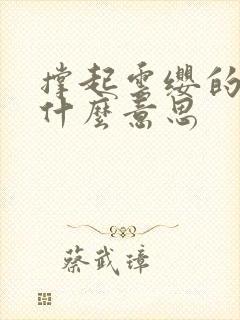 撐起雲纓的
什麼意思
蔡武璋